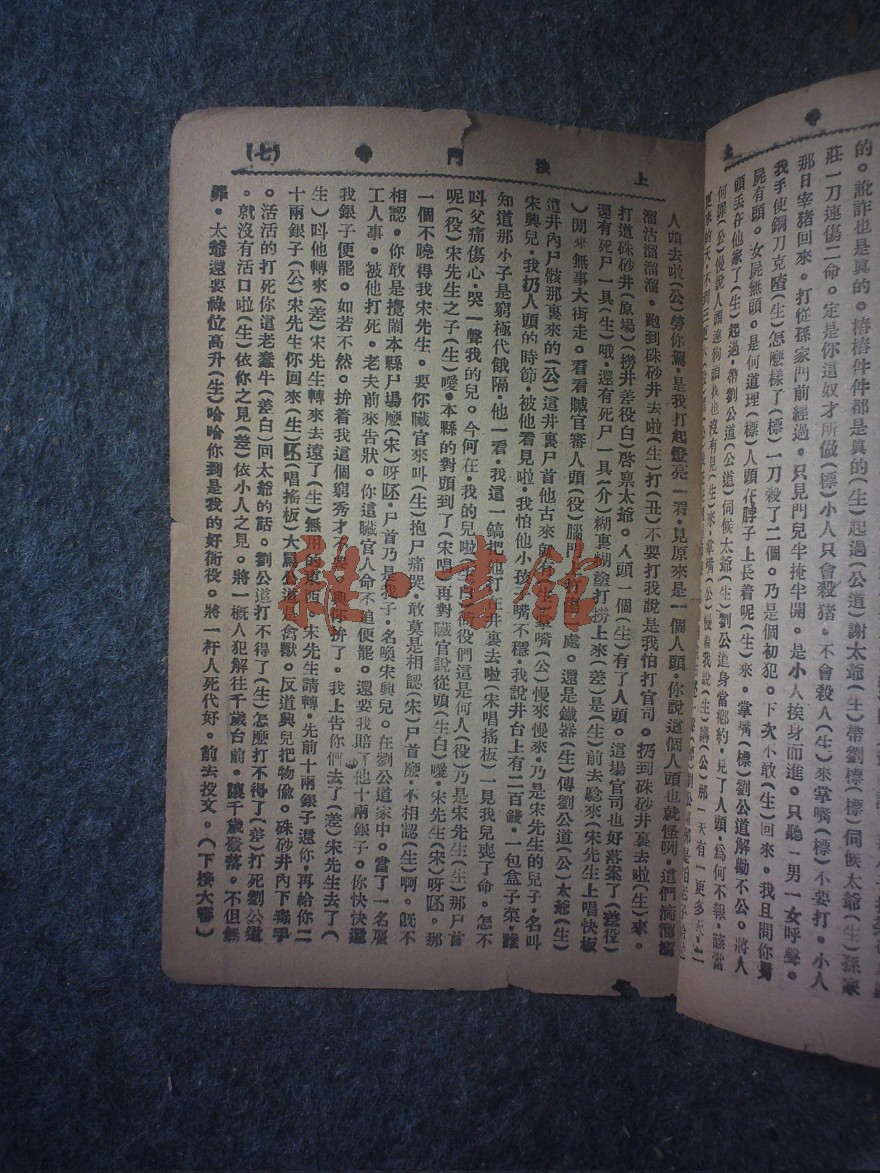 上
的。訛詐也是眞的。樁樁件件都是眞的(生)起過(公道)謝太爺(生)帶劉標(標)伺候太爺(生)孫家
莊一刀連傷二命。定是你這奴才所做(標)小人只會殺猪。不會殺人(生)來掌嘴(標)不要打。小人
那日宰猪回來。打從孫家門前經過。只見門兒半掩半開。是小人挨身而進。只聽一男一女呼聲。
我手使鋼刀克嗒(生)怎麽樣了(標)一刀殺了二個。乃是個初犯。下次不敢(生)回來。我且問你男
屍有頭。女屍無頭。是何道理(標)人頭在脖子上長着呢(生)來。掌嘴(標)劉公道解勸不公。將人
頭丟在他家了(生)起過。帶劉公道(公道)伺候太爺(生)劉公道身當鄉約。見了人頭。爲何不報。該當
何罪(公)慢說人頭連狗頭我也沒有見(生)來。掌嘴(公)慢着我說(生)講(公)那一天有一更多天。二
上法門寺
(七)
人頭去啦(公)勞你駕。是我打起燈亮一看。見原來是一個人頭。你說這個人頭也就怪咧。這們滴溜溜
溜沽溜溜溜。跑到硃砂井去啦(生)打(丑)不要打我說是我怕打官司。扔到硃砂井裏去啦(生)來。
打道硃砂井(原場)(撈井差役白)啓禀太爺。人頭一個(生)有了人頭。這場官司也好落案了(差役)
還有死尸一具(生)哦。還有死尸一具(介)糊裏糊塗打撈上來(差)是(生)前去騐來(宋先生上唱快板
)閒來無事大街走。看看贓官審人頭(役)腦門
處。還是鐵器(生)傳劉公道(公)太爺(生)
這井內尸骸那裏來的(公)這井裏尸首他古來就有(生)掌嘴(公)慢來慢來。乃是宋先生的兒子。名叫
宋興兒。我扔人頭的時節。被他看見啦。我怕他小孩
嘴不穩。我說井台上有二百錢。一包盒子菜。誰
知道那小子是窮極代餓隔。他一看。我這一鎬把他打在井裏去啦(宋唱搖板)一見我兒喪了命。怎不
呌父痛傷心。哭一聲我的兒。今何在。我的兒啦(生白)衙役們這是何人(役)乃是宋先生(生)那尸首
呢(役)宋先生之子(生)噯。本縣的對頭到了(宋唱)再對贓官說從頭(生白)噯。宋先生(宋)呀呸。那
一個不曉得我宋先生。要你贓官來叫(生)抱尸痛哭。敢莫是相認(宋)尸首麽。不相認(生)啊。旣不
相認。你敢是攪鬧本縣尸場麽(宋)呀呸。尸首乃是我子。名喚宋興兒。在劉公道家中。當了一名雇
工人事。被他打死。老夫前來吿狀。你這贓官人命不追便罷。還要我賠了他十兩銀子。你快快還
我銀子便罷。如若不然。拚着我這個窮秀才不要。與你拚了。我上告你們去了(差)宋先生去了(
生)呌他轉來(差)宋先生轉來去遠了(生)無用的東西。宋先生請轉。先前十兩銀子還你。再給你二
十兩銀子(公)宋先生你回來(生)呸(唱搖板)大駡公道是禽獸。反道興兒把物偷。硃砂井內下毒手
。活活的打死你這老蠢牛(差白)回太爺的話。劉公道打不得了(生)怎麽打不得了(差)打死劉公道
。就沒有活口啦(生)依你之見(差)依小人之見。將一槪人犯解往千歲台前。讓千歲發落。不但無
罪。太爺還要祿位高升(生)哈哈你到是我的好衙役。將一杆人死代好。前去投文。(下接大審)
雜·書館